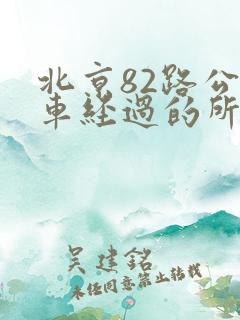 北京82路公
車經過的所
吴建銘
未任同意禁止转载